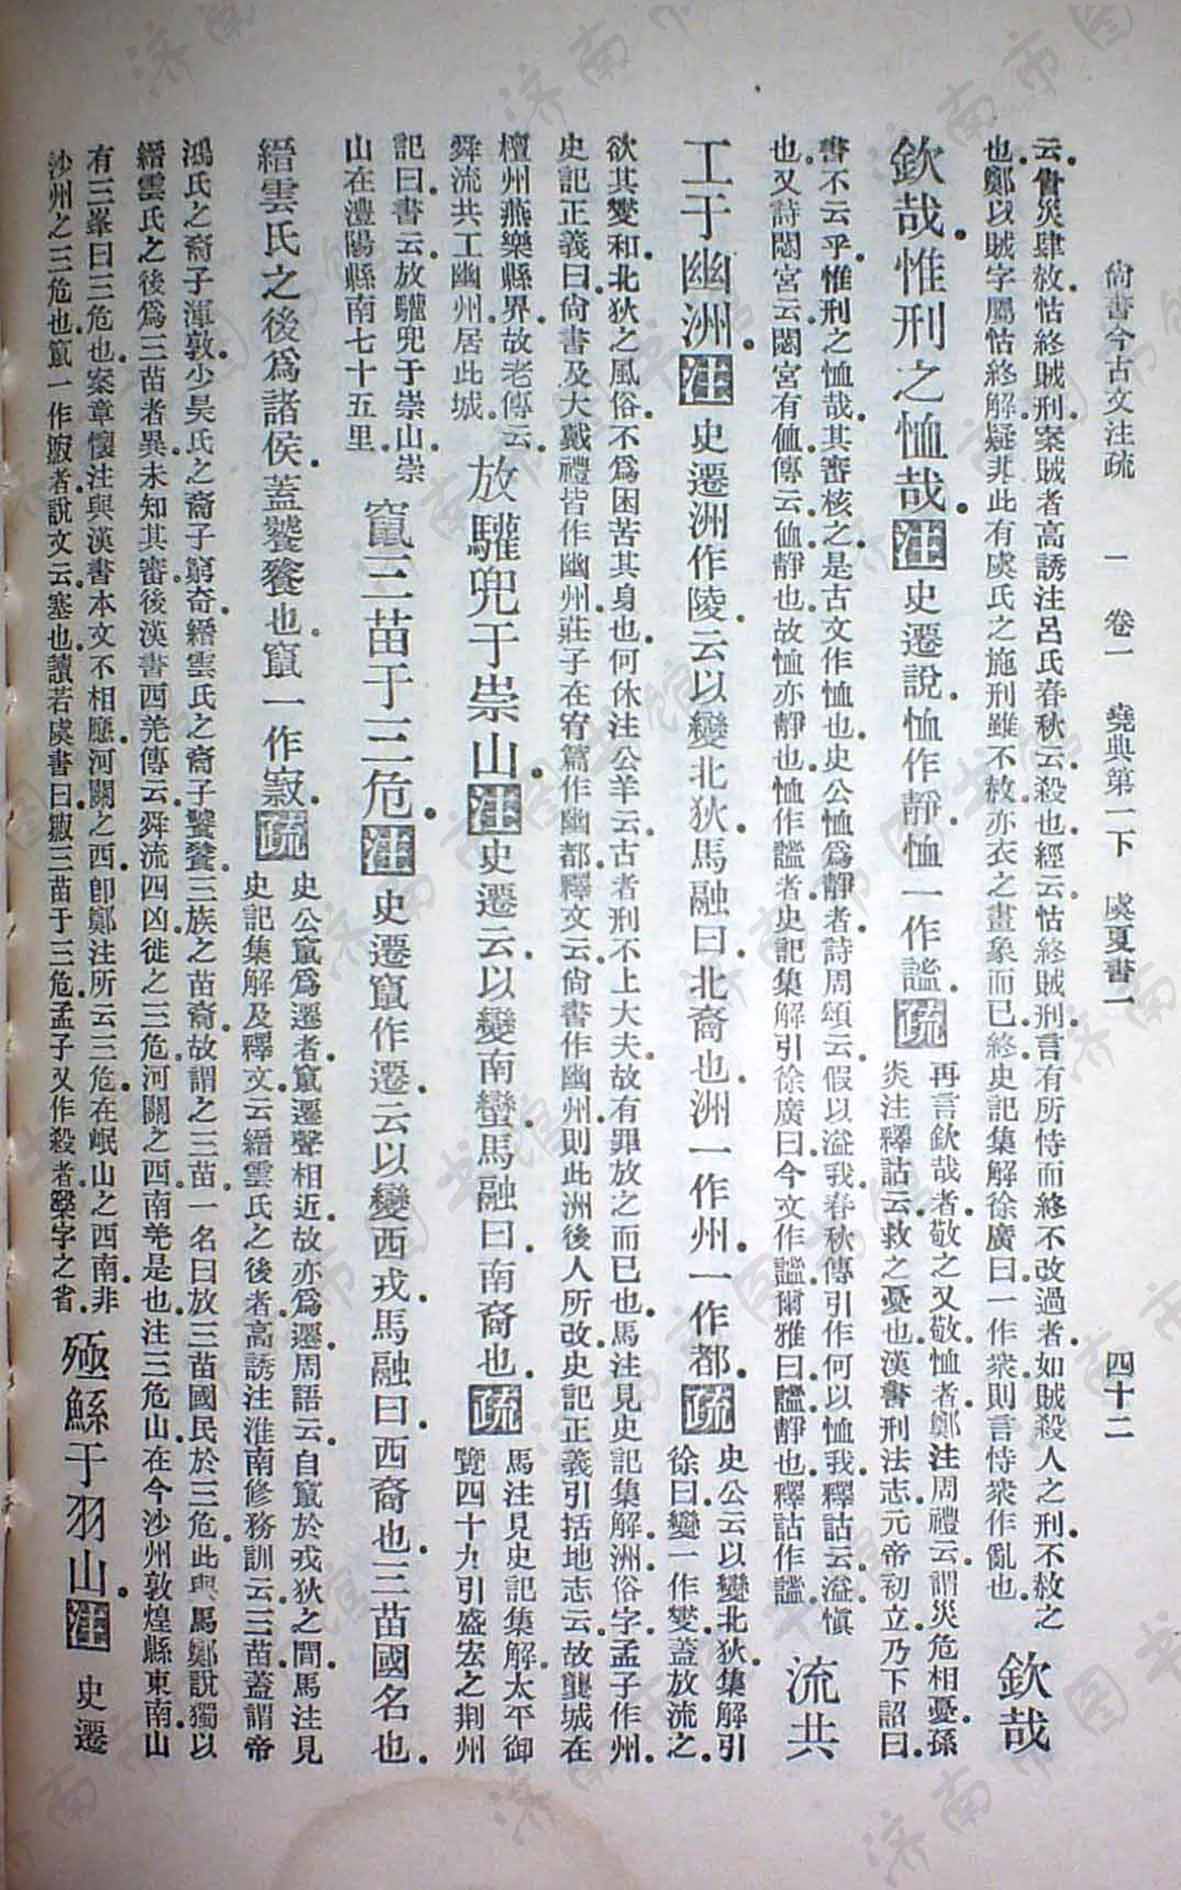 尙書今古文注疏　一　卷一　堯典第一下　虞夏書一　四十二
云。眚災肆赦。怙終賊刑。案賊者。高誘注呂氏春秋云。殺也。經云怙終賊刑。言有所恃而終不改過者。如賊殺人之刑。不赦之
也。鄭以賊字屬怙終解。疑非此有虞氏之施刑。雖不赦。亦衣之畫象而已。終。史記集解徐廣曰。一作衆。則言恃衆作亂也。
欽哉
欽哉。惟刑之恤哉。注史遷說。恤作靜。恤一作謐。疏
再言欽哉者。敬之又敬。恤者。鄭注周禮云。謂災危相憂。孫
炎注釋詁云。救之憂也。漢書刑法志。元帝初立。乃下詔曰。
書不云乎。惟刑之恤哉。其審核之。是古文作恤也。史公恤爲靜者。詩周頌云。假以溢我。春秋傳引作何以恤我。釋詁云。溢愼
也。又詩閟宮云。閟宮有侐。傳云。侐靜也。故恤亦靜也。恤作謐者。史記集解引徐廣曰。今文作謐。爾雅曰。謐靜也。釋詁作謐。
流共
工于幽洲。注史遷洲作陵。云以變北狄。馬融曰。北裔也。洲一作州。一作都。疏
史公云以變北狄。集解引
徐曰。變一作燮。蓋放流之。
欲其變和北狄之風俗。不爲困苦其身也。何休注公羊云。古者刑不上大夫。故有罪放之而已也。馬注見史記集解。洲俗字。孟子作州。
史記正義曰。尙書及大戴禮皆作幽州。莊子在宥篇作幽都。釋文云。尙書作幽州。則此洲後人所改。史記正義引括地志云。故龔城在
檀州燕樂縣界。故老傳云。
舜流共工幽州。居此城。
放驩兜于崇山。注史遷云。以變南蠻。馬融曰。南裔也。疏
馬注見史記集解。太平御
覽四十九引盛宏之荆州
記曰。書云。放驩兜于崇山。崇
山在澧陽縣南七十五里。
竄三苗于三危。注史遷竄作遷。云以變西戎。馬融曰。西裔也。三苗國名也。
縉雲氏之後爲諸侯。蓋饕餮也。竄一作㝮。疏
史公竄爲遷者。竄遷聲相近。故亦爲遷。周語云。自竄於戎狄之間。馬注見
史記集解及釋文。云縉雲氏之後者。高誘注淮南修務訓云。三苗。蓋謂帝
鴻氏之裔子渾敦。少昊氏之裔子窮奇。縉雲氏之裔子饕餮。三族之苗裔。故謂之三苗。一名曰放三苗國民於三危。此與馬鄭說獨以
縉雲氏之後爲三苗者異。未知其審。後漢書西羌傳云。舜流四凶。徙之三危。河關之西南羌是也。注三危山在今沙州敦煌縣東南。山
有三峯曰三危也。案章懷注與漢書本文不相應。河關之西。卽鄭注所云三危。在岷山之西南。非
沙州之三危也。竄一作㝮者。說文云。塞也。讀若虞書曰。㝮三苗于三危。孟子又作殺者。䊝字之省。
殛鯀于羽山。注史遷